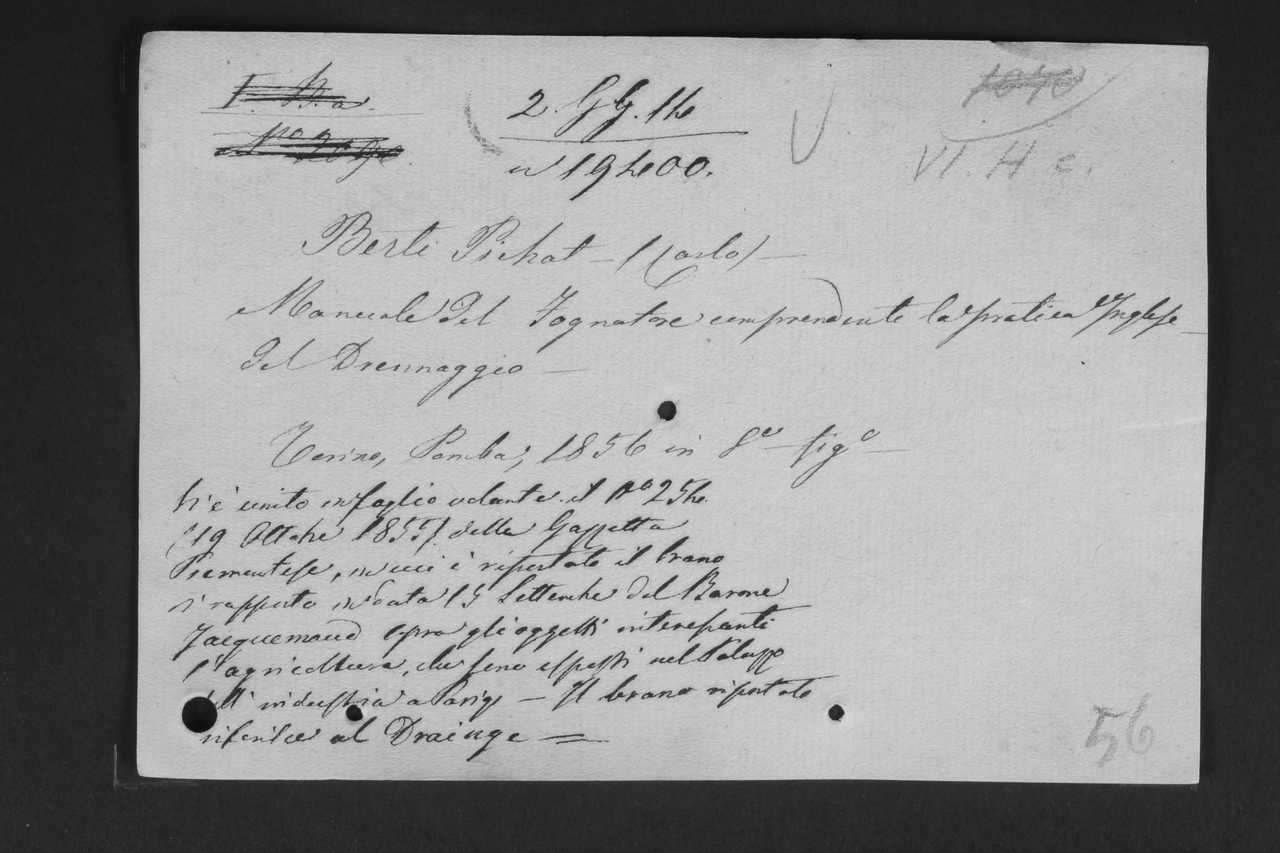 2. GG. 14
n 19400.
VI. H c.
Berti Pichat - (Carlo) -
Manuale del Fognatore comprendente la pratica Inglese
del Drennaggio -
Torino, Pomba, 1856 in 8º fig.º -
Vi è unito in foglio volante il Nº 254
(19 Ottobre 1855) della Gazzetta
Piemontese, in cui è riportato il brano
di rapporto in data 15 Settembre del Barone
Jacquemoud sopra gli oggetti interessanti
l'agricoltura, che sono esposti nel Palazzo
dell' industria a Parigi - Il brano riportato
riferisce al Drainge =
56